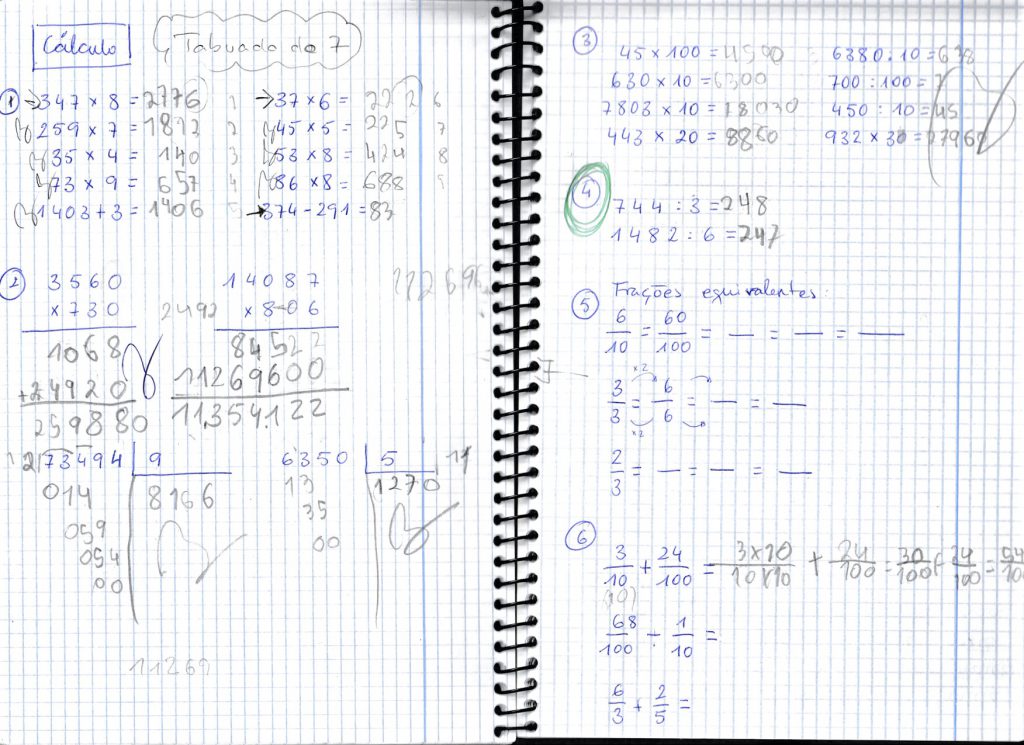 Cálculo
Tabuada do 7
1
347 × 8 = 2776
259 × 7 = 1813
35 × 4 = 140
73 × 9 = 657
1403 + 3 = 1406
37 × 6 = 222
45 × 5 = 225
53 × 8 = 424
86 × 8 = 688
374 - 291 = 83
1
2
3
4
6
7
8
9
2
3560
× 730
1068
+ 24920
259880
2492
14087
× 806
84522
11269600
11354122
73494 9
014 8166
059
054
00
6350 5
13 1270
35
00
11269
3
45 × 100 = 4500
630 × 10 = 6300
7803 × 10 = 78030
443 × 20 = 8860
6380 : 10 = 638
700 : 100 = 7
450 : 10 = 45
932 × 30 = 27960
4
744 : 3 = 248
1482 : 6 = 247
5
Frações equivalentes:
6/10 = 60/100 = — = — = —
×2
3/3 = 6/6 = — = —
×2
2/3 = — = — = —
6
3/10 + 24/100 = 3×10/10×10 + 24/100 = 30/100 + 24/100 = 54/100
(10)
68/100 - 1/10 =
6/3 + 2/5 =